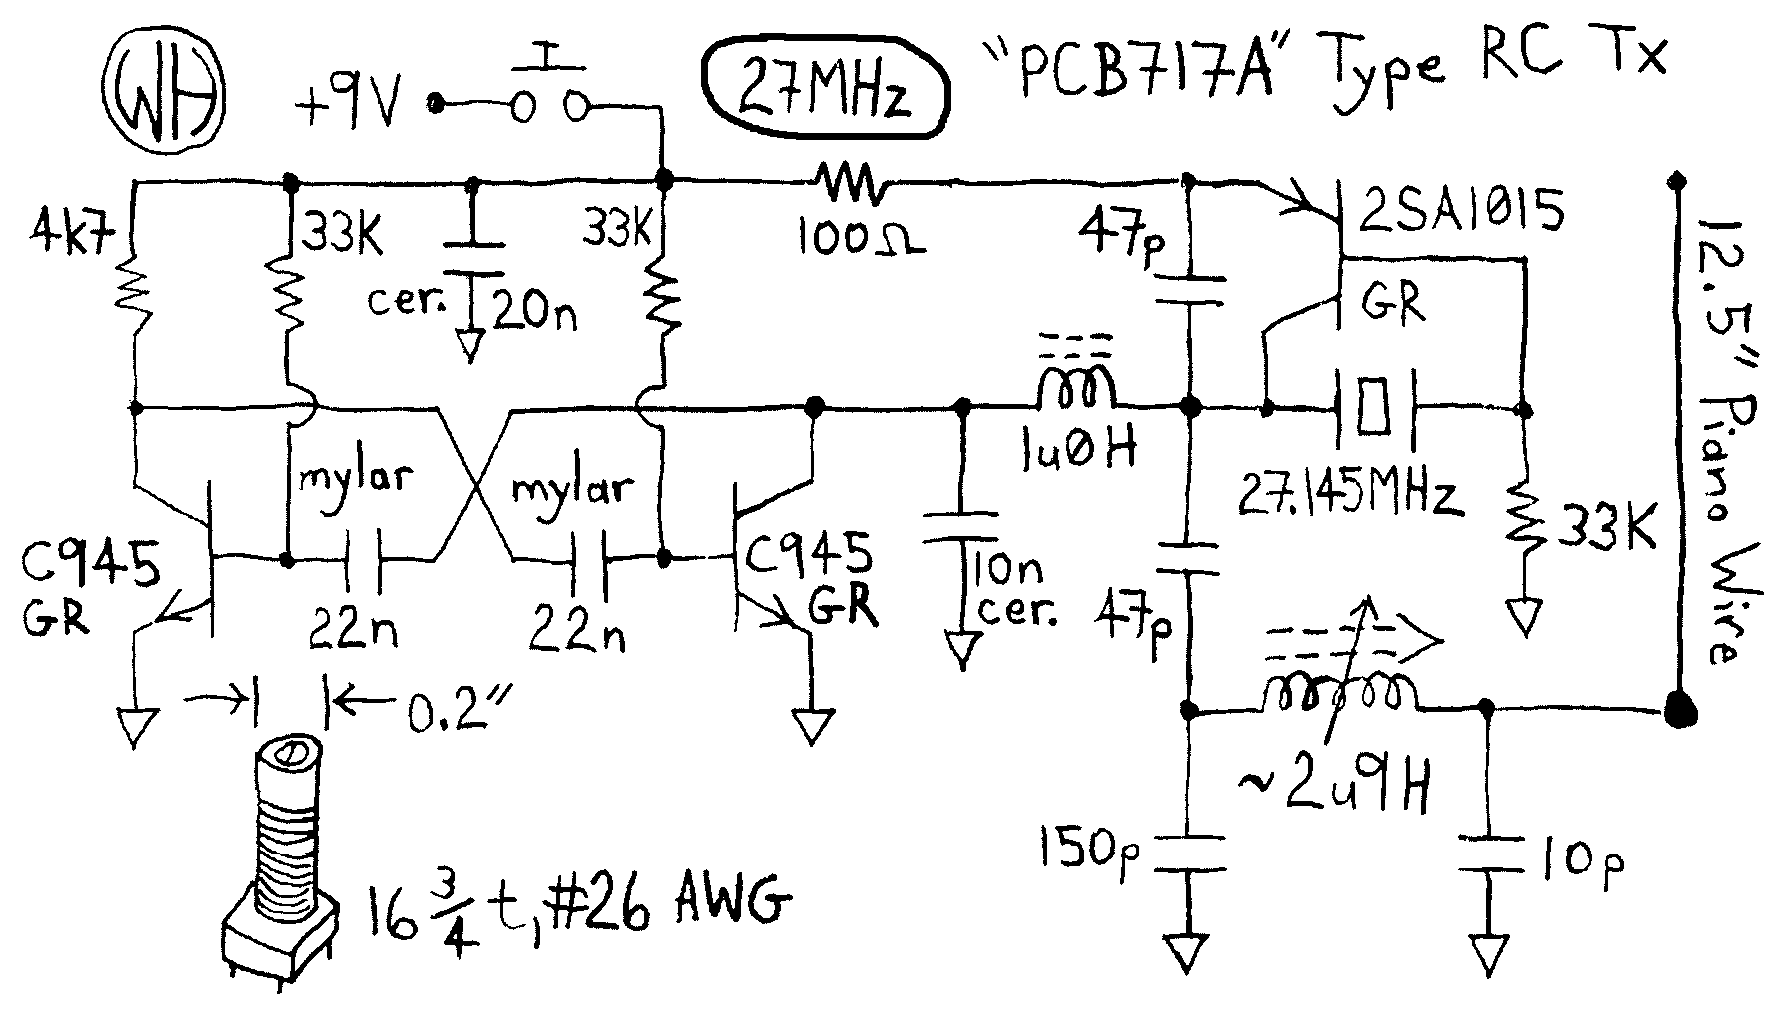 WH
+9V
27MHz
"PCB717A" Type RC Tx
4k7
33K
cer.
20n
33K
100Ω
47p
2SA1015
GR
12.5" Piano Wire
1u0H
27.145MHz
33K
mylar
mylar
C945
GR
22n
22n
C945
GR
10n
cer.
47p
0.2"
~2u9H
150p
10p
16 3/4 t, #26 AWG